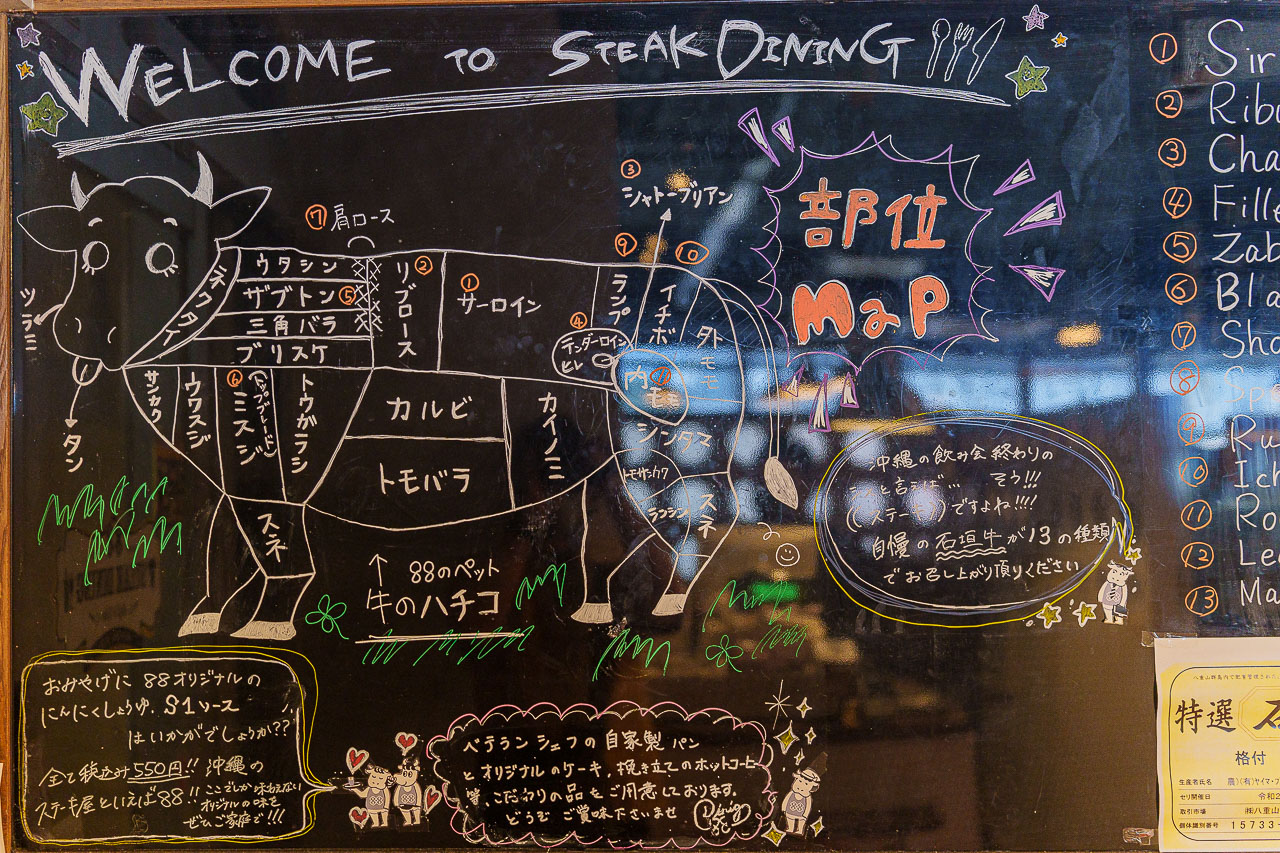 WELCOME TO STEAK DINING
部位
MaP
⑦肩ロース
③
シャトーブリアン
ツラミ
タン
ネクタイ
ウタシン
ザブトン⑤
三角バラ
ブリスケ
リブロース②
①
サーロイン
⑨
ランプ
⑩
イチボ
④
テンダーロイン
ヒレ
内モモ⑪
シンタマ
トモサンカク
ランシン
スネ
サンカク
ウワスジ
⑥
ミスジ
トウガラシ
カルビ
トモバラ
カイノミ
スネ
↑ 88のペット
牛のハチコ
沖縄の飲み会終わりの
と言えば… そう!!!
(ステーキ)ですよね!!!!
自慢の石垣牛が13の種類
でお召し上がり頂りください
おみやげに 88オリジナルの
にんにくしょうゆ、S1ソース
はいかがでしょうか??
全て税込み550円!! 沖縄の
ステーキ屋といえば88!! ここでしか味わえない
オリジナルの味を
ぜひご家庭で!!!
ベテランシェフの自家製パン
とオリジナルのケーキ,挽き立てのホットコーヒー
等、こだわりの品をご用意しております。
どうむ ご賞味下さいませ
① Sir
② Ribu
③ Cha
④ Fille
⑤ Zab
⑥ Bla
⑦ Sho
⑧ Spe
⑨ Ru
⑩ Ich
⑪ Ro
⑫ Le
⑬ Ma
特選
格付
生産者氏名 農)(有)ヤイマ・フ
セリ開催日 令和2
取引市場 ㈱八重山
個体識別番号 15733-